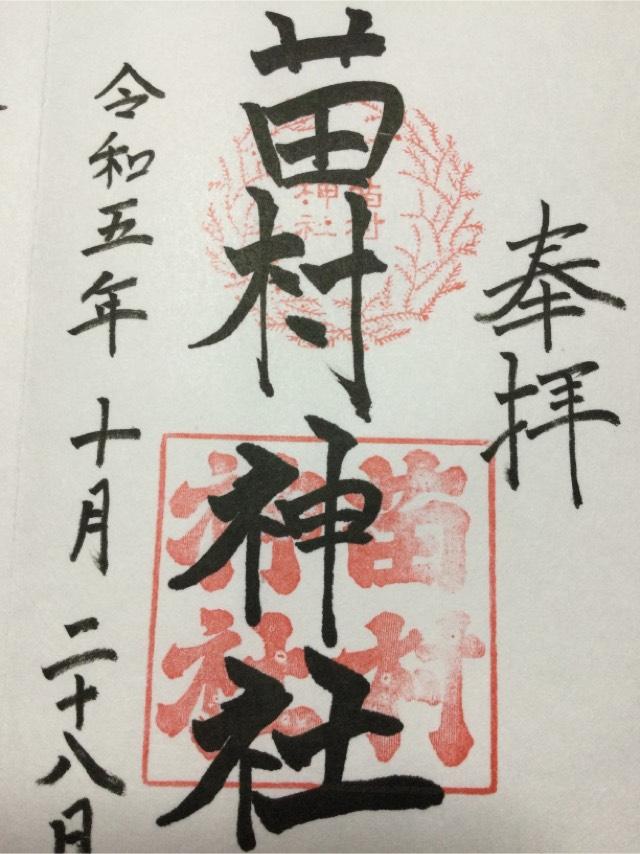 奉拝
苗村神社
苗村
神社
苗村
神社
令和五年 十月 二十八日